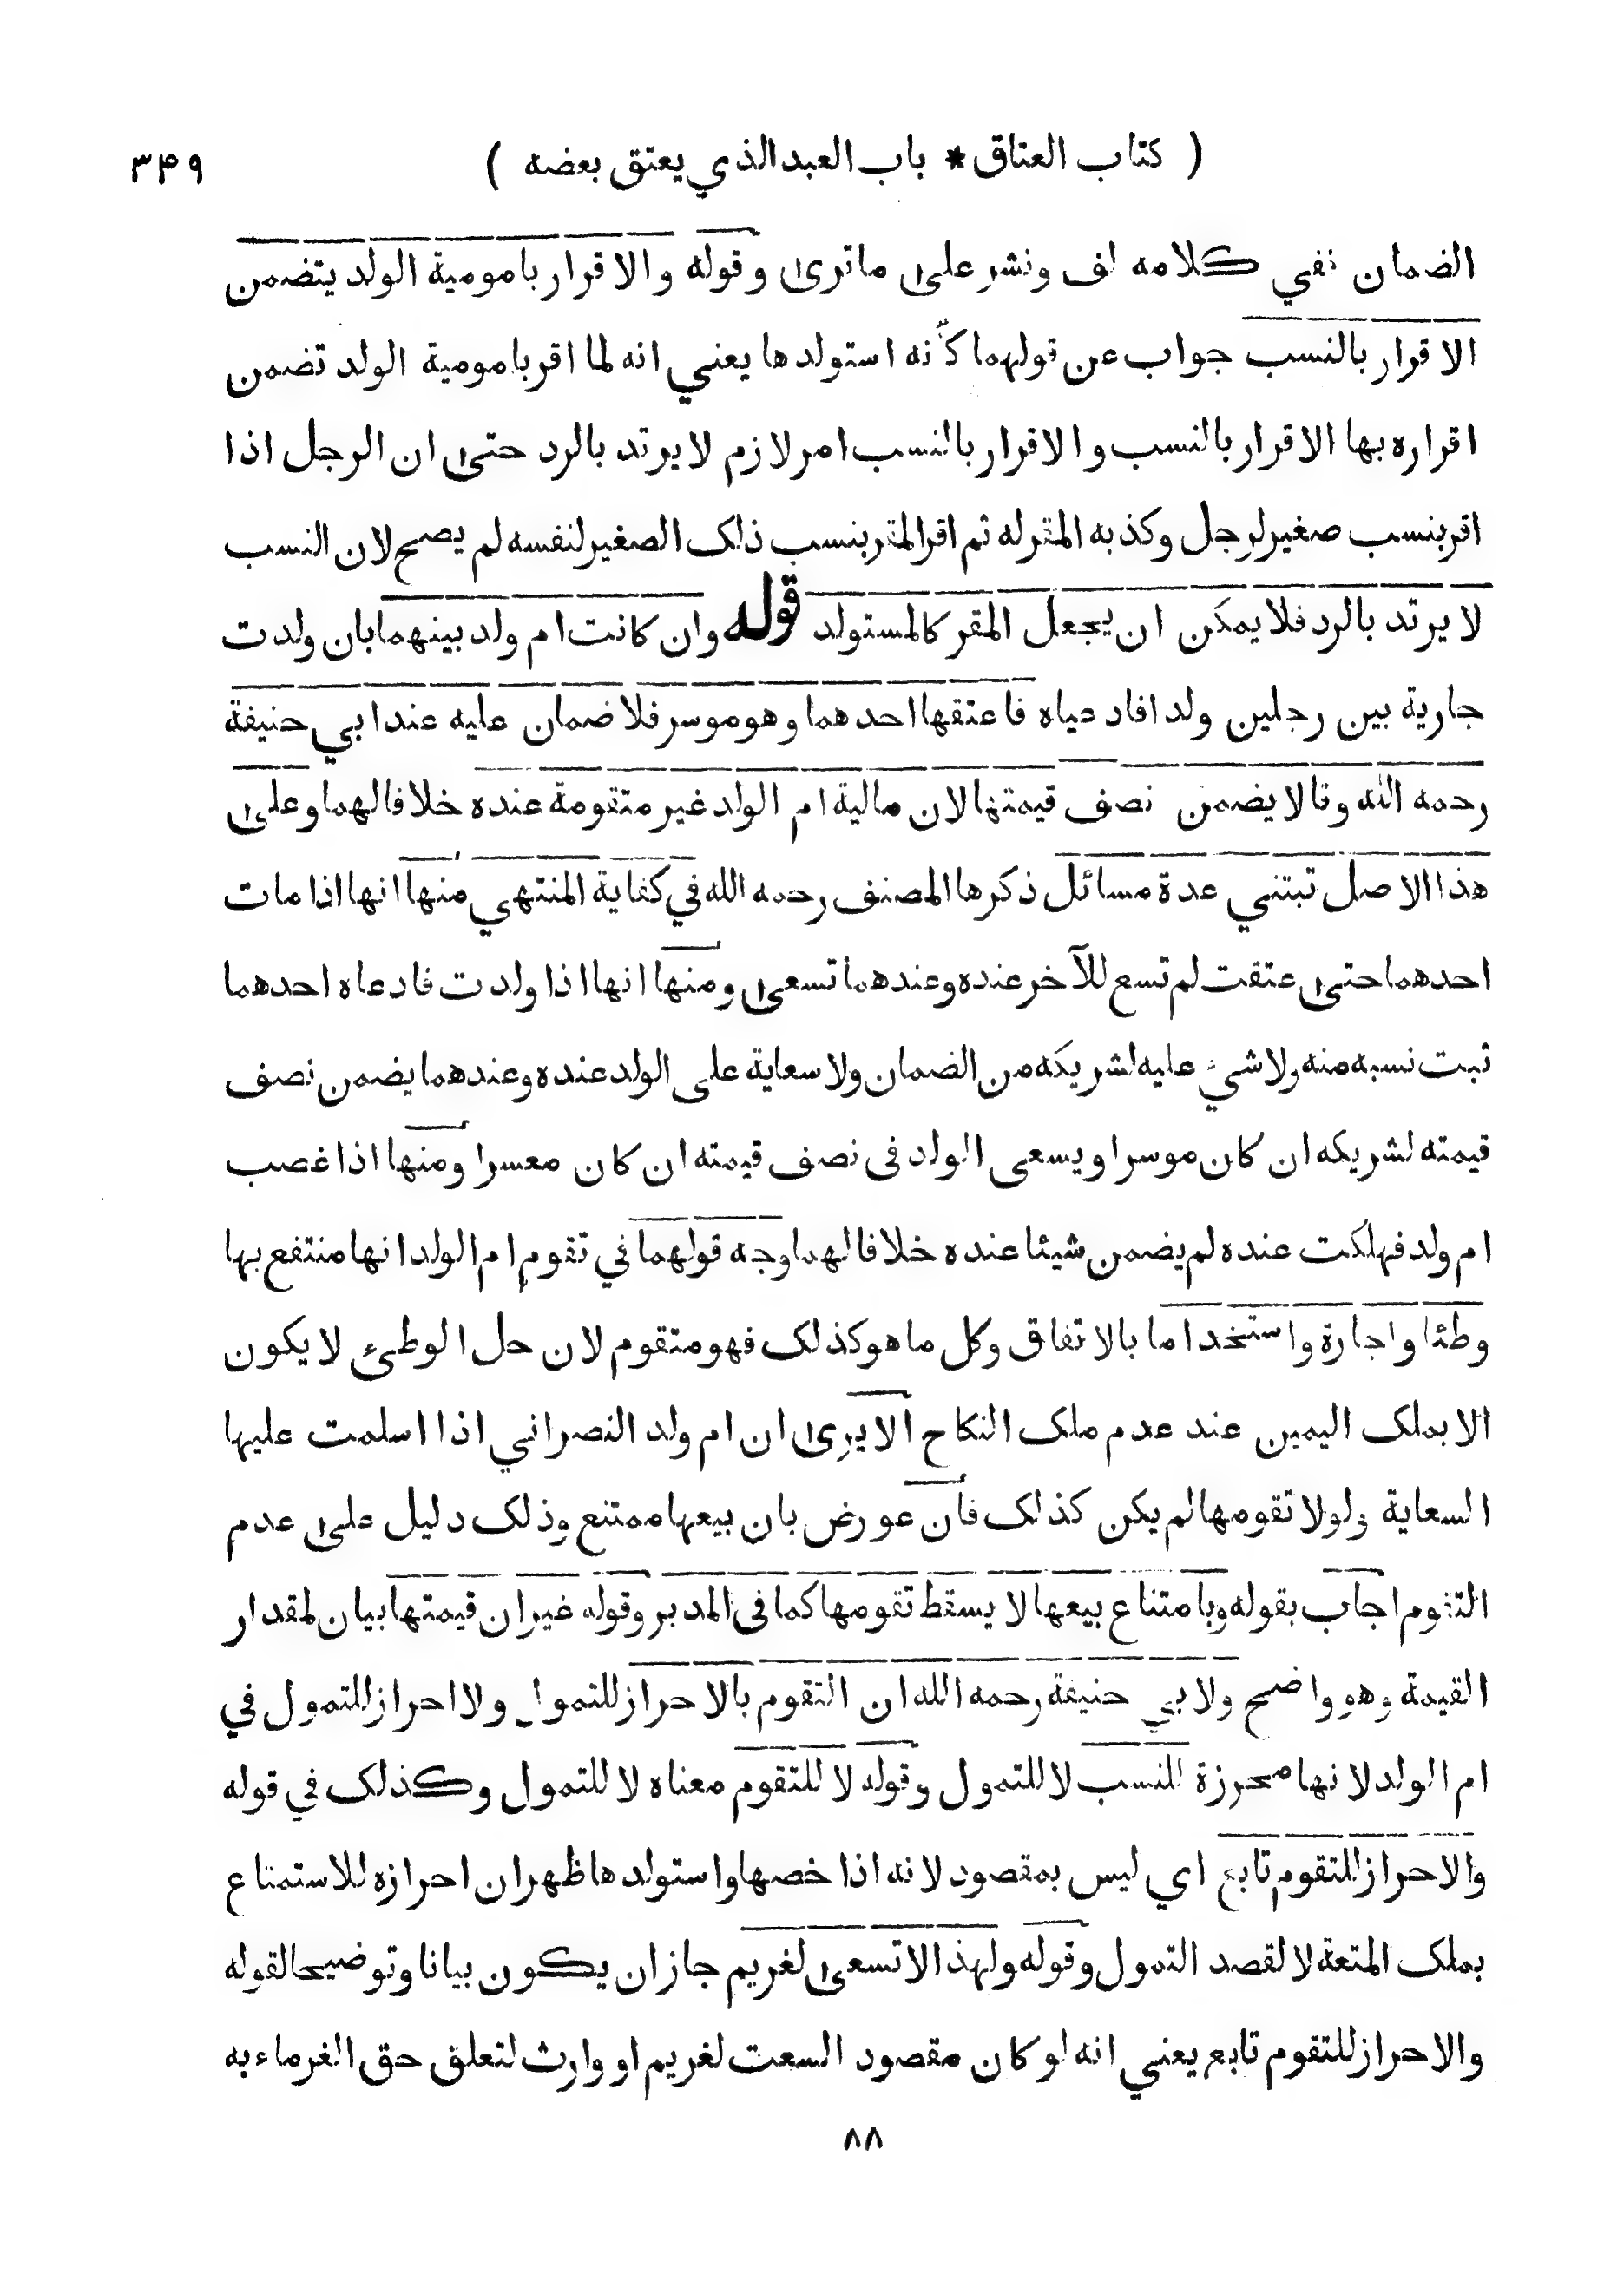 ( كتاب العتاق * باب العبد الذي يعتق بعضه ) ٣٤٩
الضمان نفي كلامه لف ونشر على ما ترى وقوله والاقرار بامومية الولد يتضمن
الاقرار بالنسب جواب عن قولهما كأنه استولدها يعني انه لما اقر بامومية الولد تضمن
اقراره بها الاقرار بالنسب والاقرار بالنسب امر لازم لا يرتد بالرد حتى ان الرجل اذا
اقر بنسب صغير لرجل وكذبه المقر له ثم اقر المقر بنسب ذلك الصغير لنفسه لم يصح لان النسب
لا يرتد بالرد فلا يمكن ان يجعل المقر كالمستولد قوله وان كانت ام ولد بينهما بان ولدت
جارية بين رجلين ولدا فادعياه فاعتقها احدهما وهو موسر فلا ضمان عليه عند ابي حنيفة
رحمه الله وقالا يضمن نصف قيمتها لان مالية ام الولد غير متقومة عنده خلافا لهما وعلى
هذا الاصل تبتني عدة مسائل ذكرها المصنف رحمه الله في كفاية المنتهي منها انها اذا مات
احدهما حتى عتقت لم تسع للآخر عنده وعندهما تسعى ومنها انها اذا ولدت فادعاه احدهما
ثبت نسبه منه ولا شيء عليه لشريكه من الضمان ولا سعاية على الولد عنده وعندهما يضمن نصف
قيمته لشريكه ان كان موسرا ويسعى الولد في نصف قيمته ان كان معسرا ومنها اذا غصب
ام ولد فهلكت عنده لم يضمن شيئا عنده خلافا لهما وجه قولهما في تقوم ام الولد انها منتفع بها
وطئا واجارة واستخداما بالاتفاق وكل ما هو كذلك فهو متقوم لان حل الوطئ لا يكون
الا بملك اليمين عند عدم ملك النكاح الا يرى ان ام ولد النصراني اذا اسلمت عليها
السعاية ولولا تقومها لم يكن كذلك فأن عورض بان بيعها ممتنع وذلك دليل على عدم
التقوم اجاب بقوله وبامتناع بيعها لا يسقط تقومها كما في المدبر وقوله غير ان قيمتها بيان لمقدار
القيمة وهو واضح ولابي حنيفة رحمه الله ان التقوم بالاحراز للتمول ولا احراز للتمول في
ام الولد لانها محرزة للنسب لا للتمول وقوله لا للتقوم معناه لا للتمول وكذلك في قوله
والاحراز للتقوم تابع اي ليس بمقصود لانه اذا خصها واستولدها ظهر ان احرازه للاستمتاع
بملك المتعة لا لقصد التمول وقوله ولهذا لا تسعى لغريم جاز ان يكون بيانا وتوضيحا لقوله
والاحراز للتقوم تابع يعني انه لو كان مقصود السعت لغريم او وارث لتعلق حق الغرماء به
٨٨